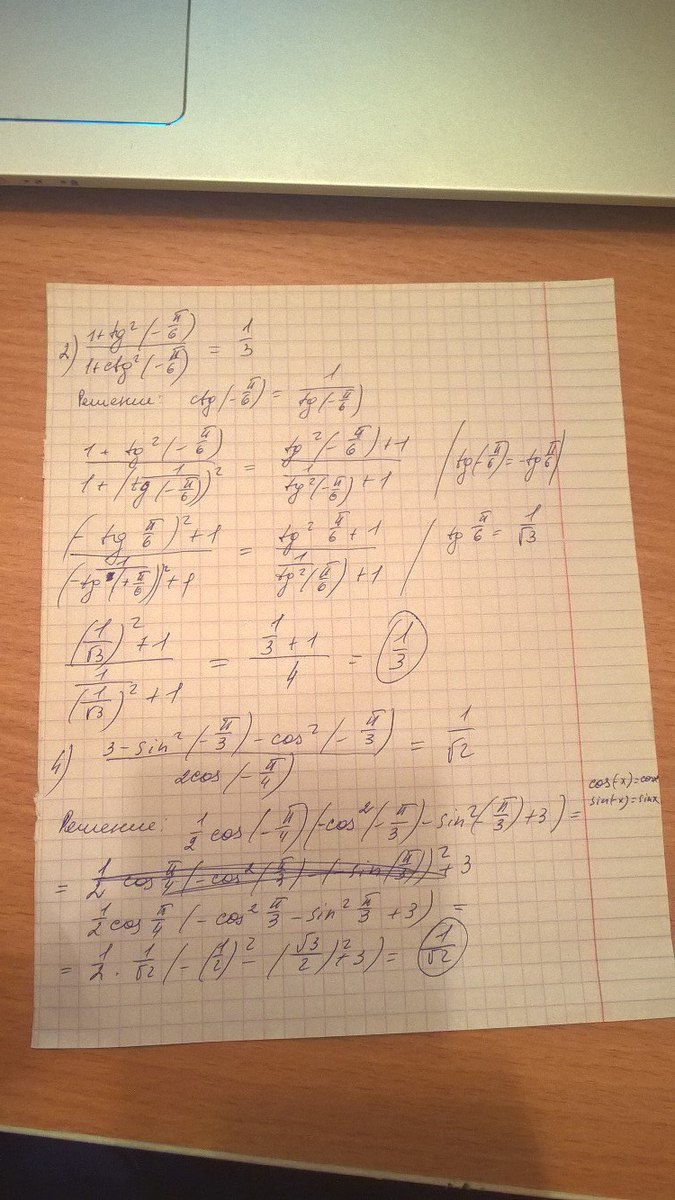 2) (1+tg²(-π/6))/(1+ctg²(-π/6)) = 1/3
Решение: ctg(-π/6) = 1/tg(-π/6)
(1+tg²(-π/6))/(1+(1/tg(-π/6))²) = (tg²(-π/6)+1)/(1/tg²(-π/6)+1) | tg(-π/6)=-tg π/6 |
((-tg π/6)²+1)/((-1/tg(+π/6))²+1) = (tg² π/6+1)/(1/tg²(π/6)+1) / tg π/6 = 1/√3
((1/√3)²+1)/(1/(1/√3)²+1) = (1/3+1)/4 = 1/3
4) (3-sin²(-π/3)-cos²(-π/3))/(2cos(-π/4)) = 1/√2
cos(-x)=cosx
sin(-x)=sinx
Решение: 1/2 cos(-π/4)(-cos²(-π/3)-sin²(-π/3)+3) =
= 1/2 cos π/4 (-cos²(π/3) +3
1/2 cos π/4 (-cos² π/3 - sin² π/3 +3) =
= 1/2 · 1/√2 (-(1/2)² - (√3/2)²+3) = 1/√2